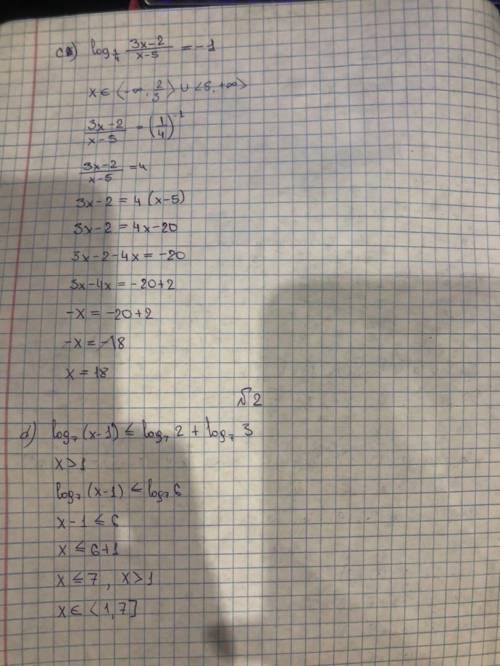 c) log_{1/4} (3x-2)/(x-5) = -1
x ∈ ⟨-∞, 2/3⟩ ∪ ⟨5, +∞⟩
(3x-2)/(x-5) = (1/4)^{-1}
(3x-2)/(x-5) = 4
3x-2 = 4 (x-5)
3x-2 = 4x-20
3x-2-4x = -20
3x-4x = -20+2
-x = -20+2
-x = -18
x = 18
№2
a) log₇ (x-1) ≤ log₇ 2 + log₇ 3
x>1
log₇ (x-1) ≤ log₇ 6
x-1 ≤ 6
x ≤ 6+1
x ≤ 7, x>1
x ∈ ⟨1, 7]